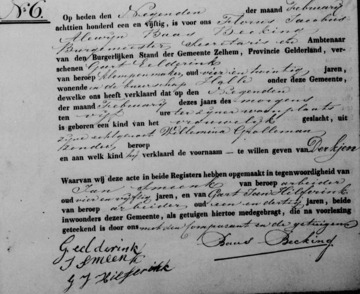 No 6.
Op heden den Negenden der maand Februarij
achttien honderd een en vijftig, is voor ons Florus Jacobus
Alewijn Buus Becking
Burgemeester, Secretaris en Ambtenaar
van den Burgerlijken Stand der Gemeente Zelhem, Provincie Gelderland, ver-
schenen Geddelrink
van beroep klompenmaker oud vier en twintig jaren,
wonende in de buurschap onder deze Gemeente,
dewelke ons heeft verklaard dat op den Negenden
der maand Februarij dezes jaars des morgens
ten vijf ure
is geboren een kind van het vrouwelijk geslacht, uit
zijne echtgenoot Willemina
zonder beroep
en aan welk kind hij verklaard de voornaam te willen geven van Dersken
Waarvan wij deze acte in beide Registers hebben opgemaakt in tegenwoordigheid van
Jan Smeenk van beroep arbeider
oud vier en vijftig jaren, en van Gart Jan Hilferink
van beroep arbeider oud een en dertig jaren, beide
inwoonders dezer Gemeente, als getuigen hiertoe medegebragt, die na voorlezing
geteekend is door ons met den Comparant en de getuigen
Geddelrink
J Smeenk
G J Hilferink
Buus Becking